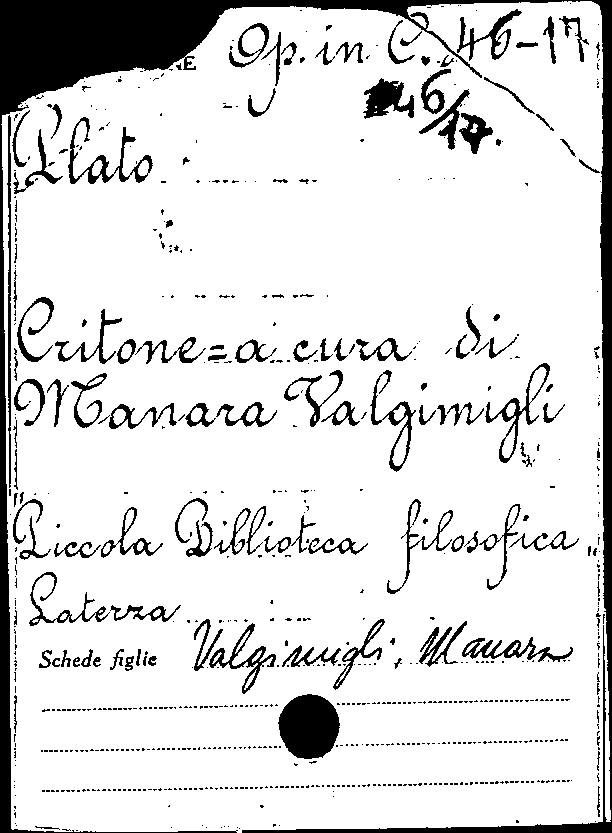 Op. in C. 46-17
46/17.
Plato
Critone = a cura di
Manara Valgimigli
"Piccola Biblioteca filosofica"
Laterza
Schede figlie Valgimigli, Manara